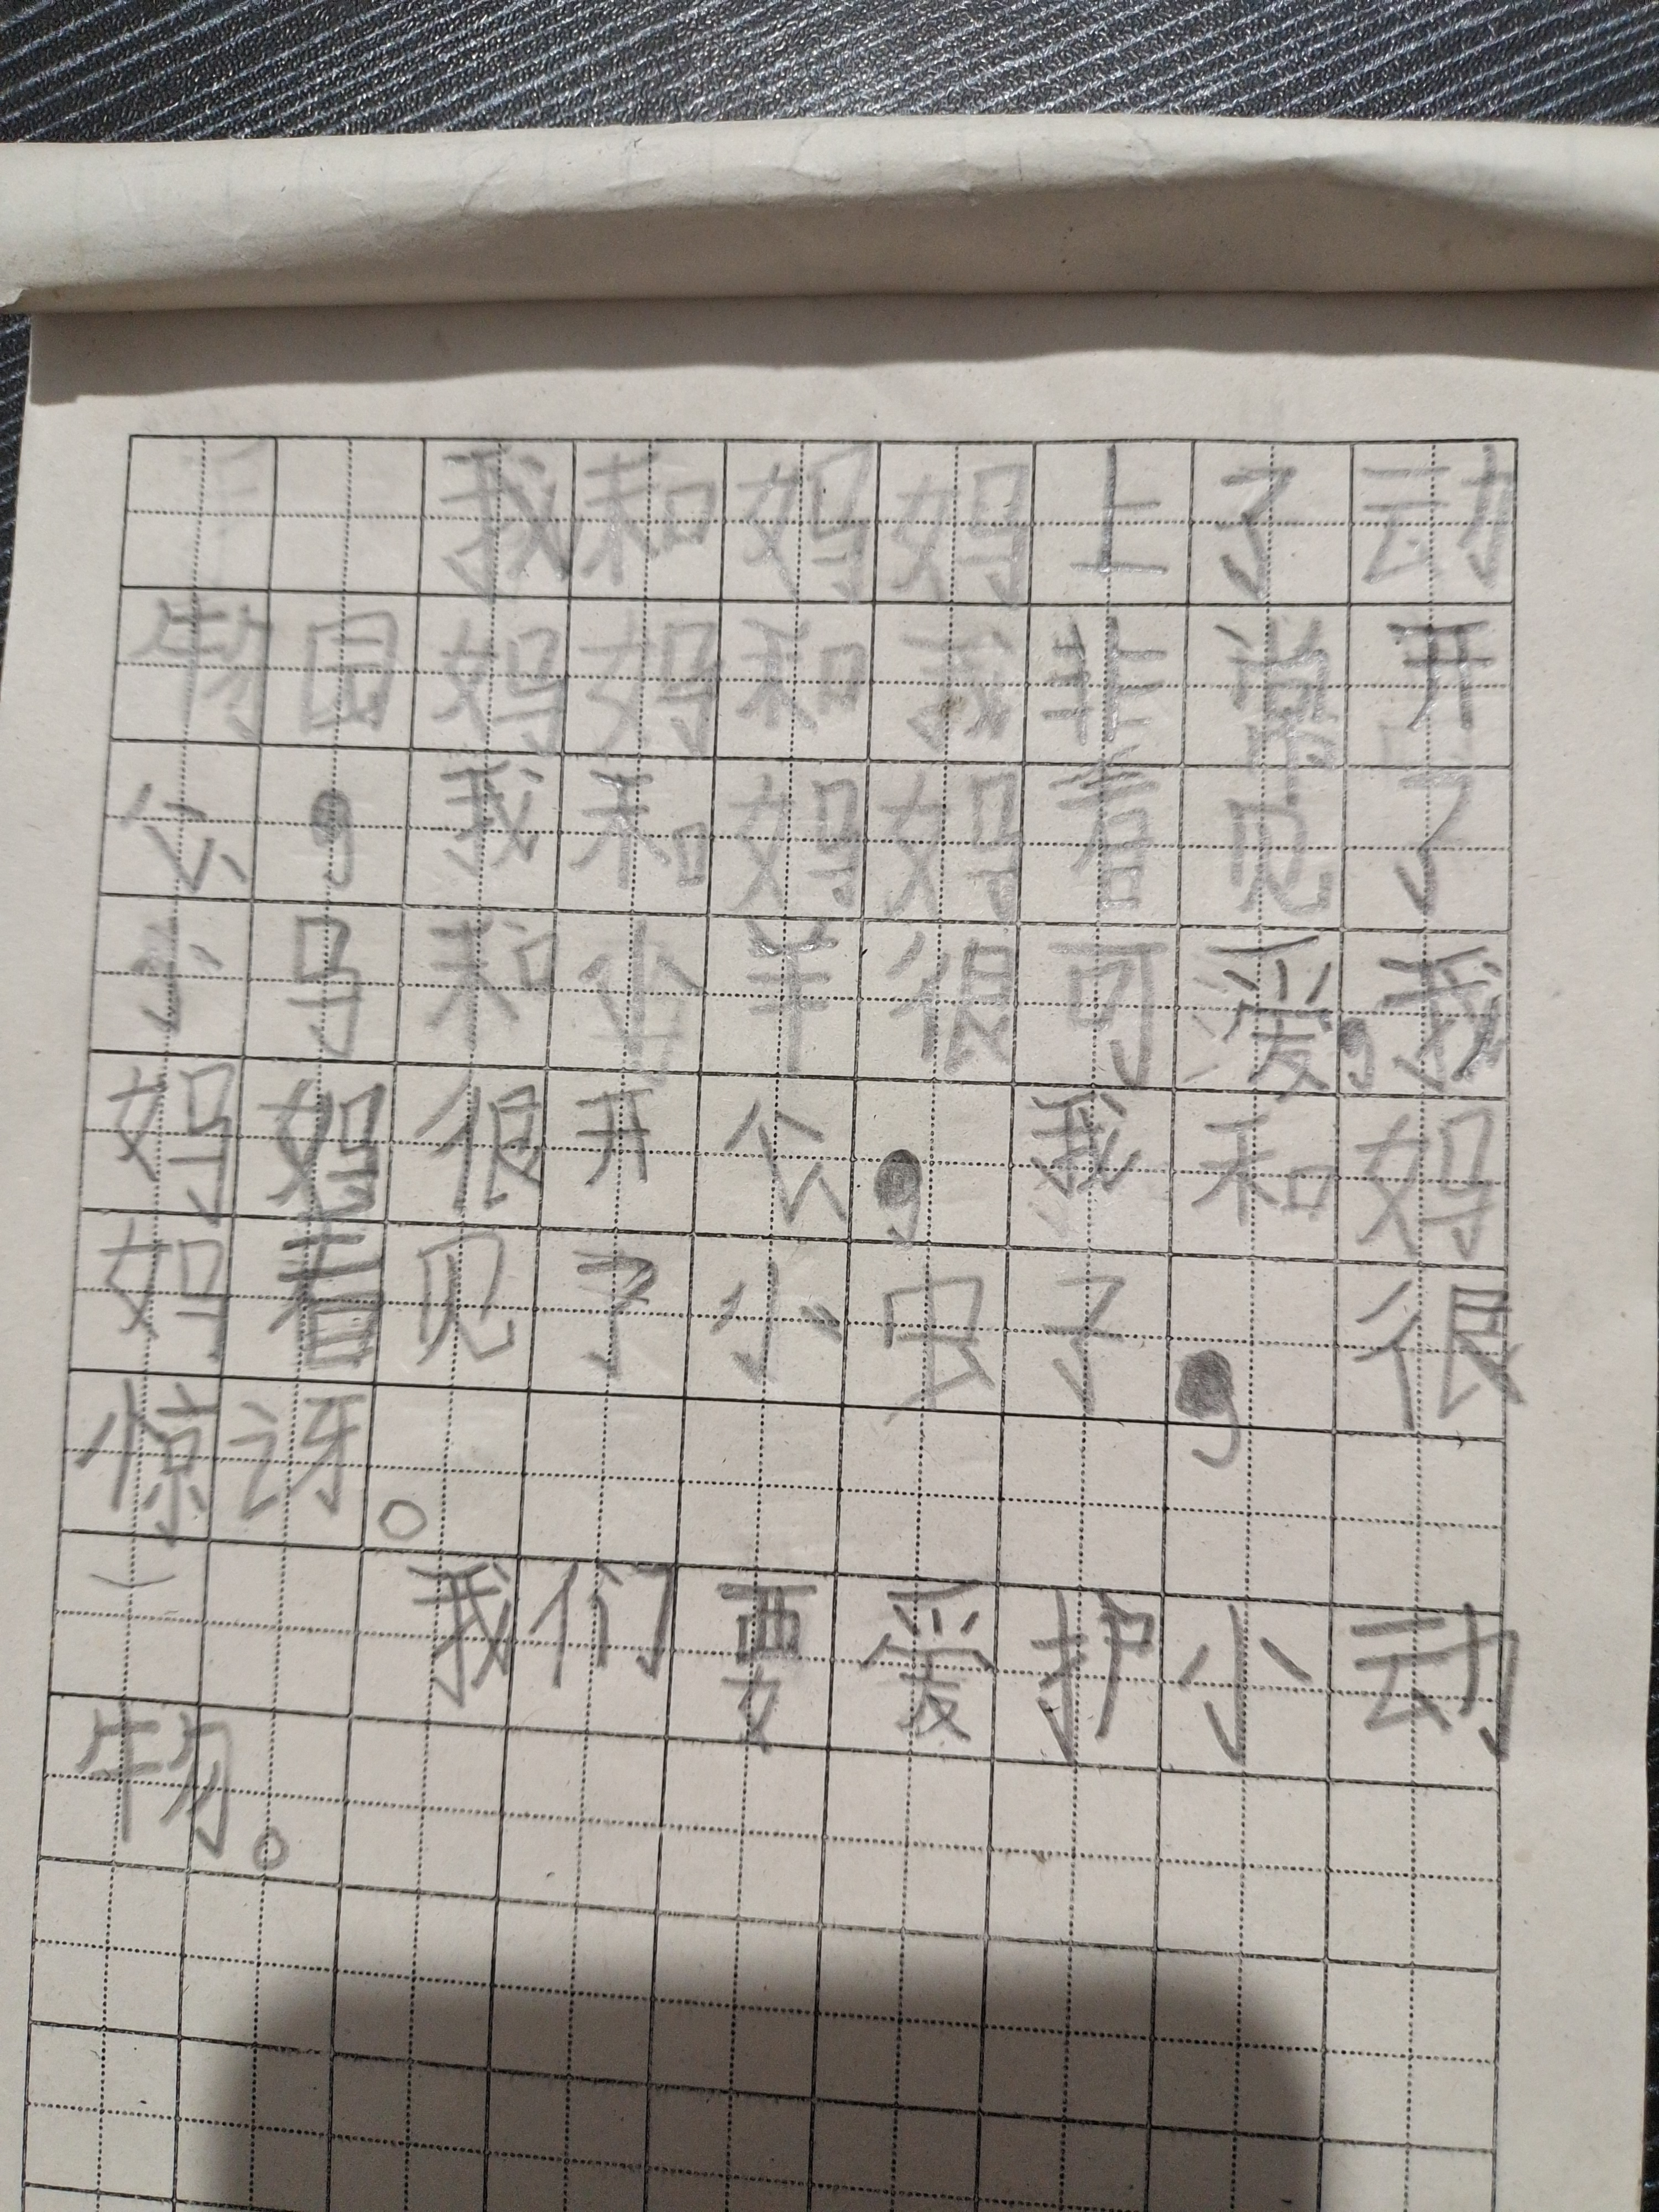 我和妈妈上了动
物园妈妈和我非常开
心,我和妈妈看见了
小马和小羊很可爱,我
妈妈很开心,我和妈
妈看见了小虫子,很
惊讶。
我们要爱护小动
物。